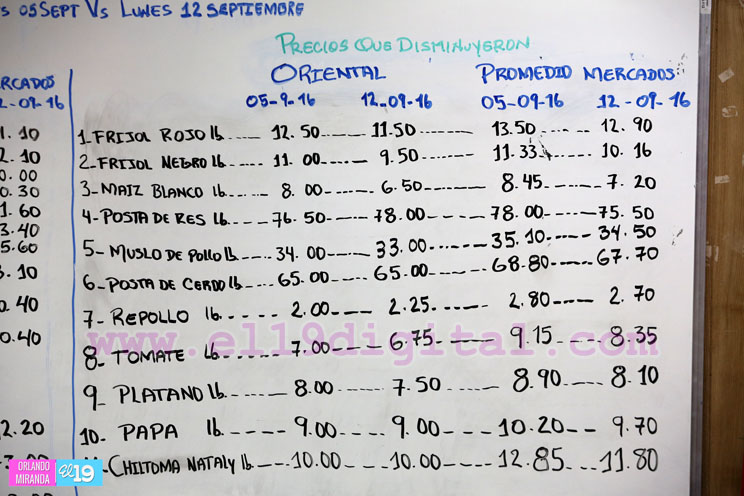 S 05 SEPT VS LUNES 12 SEPTIEMBRE
PRECIOS QUE DISMINUYERON
RCADOS ORIENTAL PROMEDIO MERCADOS
2-09-16 05-9-16 12-09-16 05-09-16 12-09-16
1.10 1. FRIJOL ROJO lb 12.50 11.50 13.50 12.90
2.10 2- FRIJOL NEGRO lb 11.00 9.50 11.33 10.16
0.00
0.30 3- MAIZ BLANCO lb 8.00 6.50 8.45 7.20
1.60 4- POSTA DE RES lb 76.50 78.00 78.00 75.50
3.40
5.60 5- MUSLO DE POLLO lb 34.00 33.00 35.10 34.50
3.10 6- POSTA DE CERDO lb 65.00 65.00 68.80 67.70
0.40 7- REPOLLO lb 2.00 2.25 2.80 2.70
www.el19digital.com
0.40 8- TOMATE lb 7.00 6.75 9.15 8.35
9- PLATANO lb 8.00 7.50 8.90 8.10
2.20 10- PAPA lb 9.00 9.00 10.20 9.70
CHILTOMA NATALY lb 10.00 10.00 12.85 11.80
ORLANDO
MIRANDA
El 19